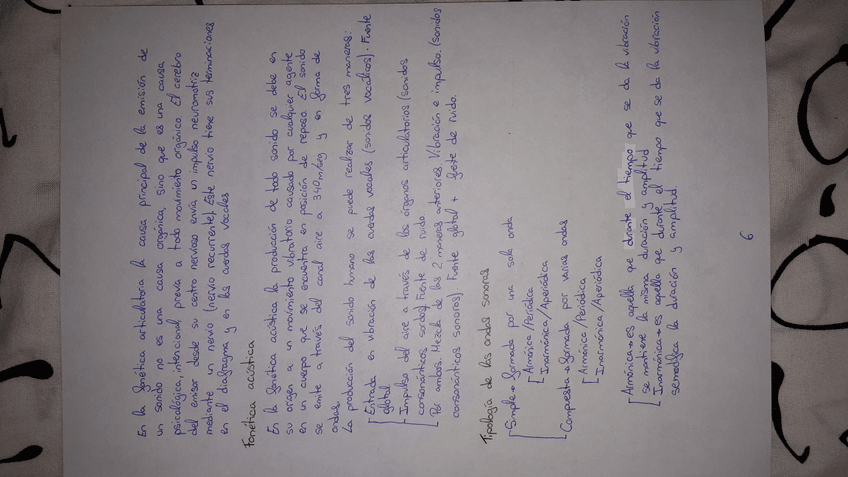 En la fonética articulatoria la causa principal de la emisión de
un sonido no es una causa orgánica, sino que es una causa
psicológica, intencional, previa a todo movimiento orgánico. El cerebro
del emisor desde su centro nervioso envía un impulso neuromotriz
mediante un nervio (nervio recurrente). Este nervio tiene sus terminaciones
en el diafragma y en las cuerdas vocales
Fonética acústica
En la fonética acústica la producción de todo sonido se debe en
su origen a un movimiento vibratorio causado por cualquier agente
en un cuerpo que se encuentra en posición de reposo. El sonido
se emite a través del canal aire a 340m/seg y en forma de
ondas.
La producción del sonido humano se puede realizar de tres maneras:
Entrada en vibración de las cuerdas vocales (sonidos vocálicos). Fuente
glotal
- Impulso del aire a través de los órganos articulatorios (sonidos
consonánticos sordos) Fuente de ruido
Por ambos. Mezcla de las 2 maneras anteriores. Vibración e impulso. (sonidos
consonánticos sonoros) Fuente glotal + fuente de ruido.
Tipología de las ondas sonoras
Simple → formada por una sola onda
Armónica / Periódica
Inarmónica / Aperiódica
Compuesta → formada por varias ondas
Armónica / Periódica
Inarmónica / Aperiódica
Armónica → es aquella que durante el tiempo que se da la vibración
se mantiene la misma duración y amplitud
Inarmónica → es aquella que durante el tiempo que se da la vibración
se modifica la duración y amplitud
6